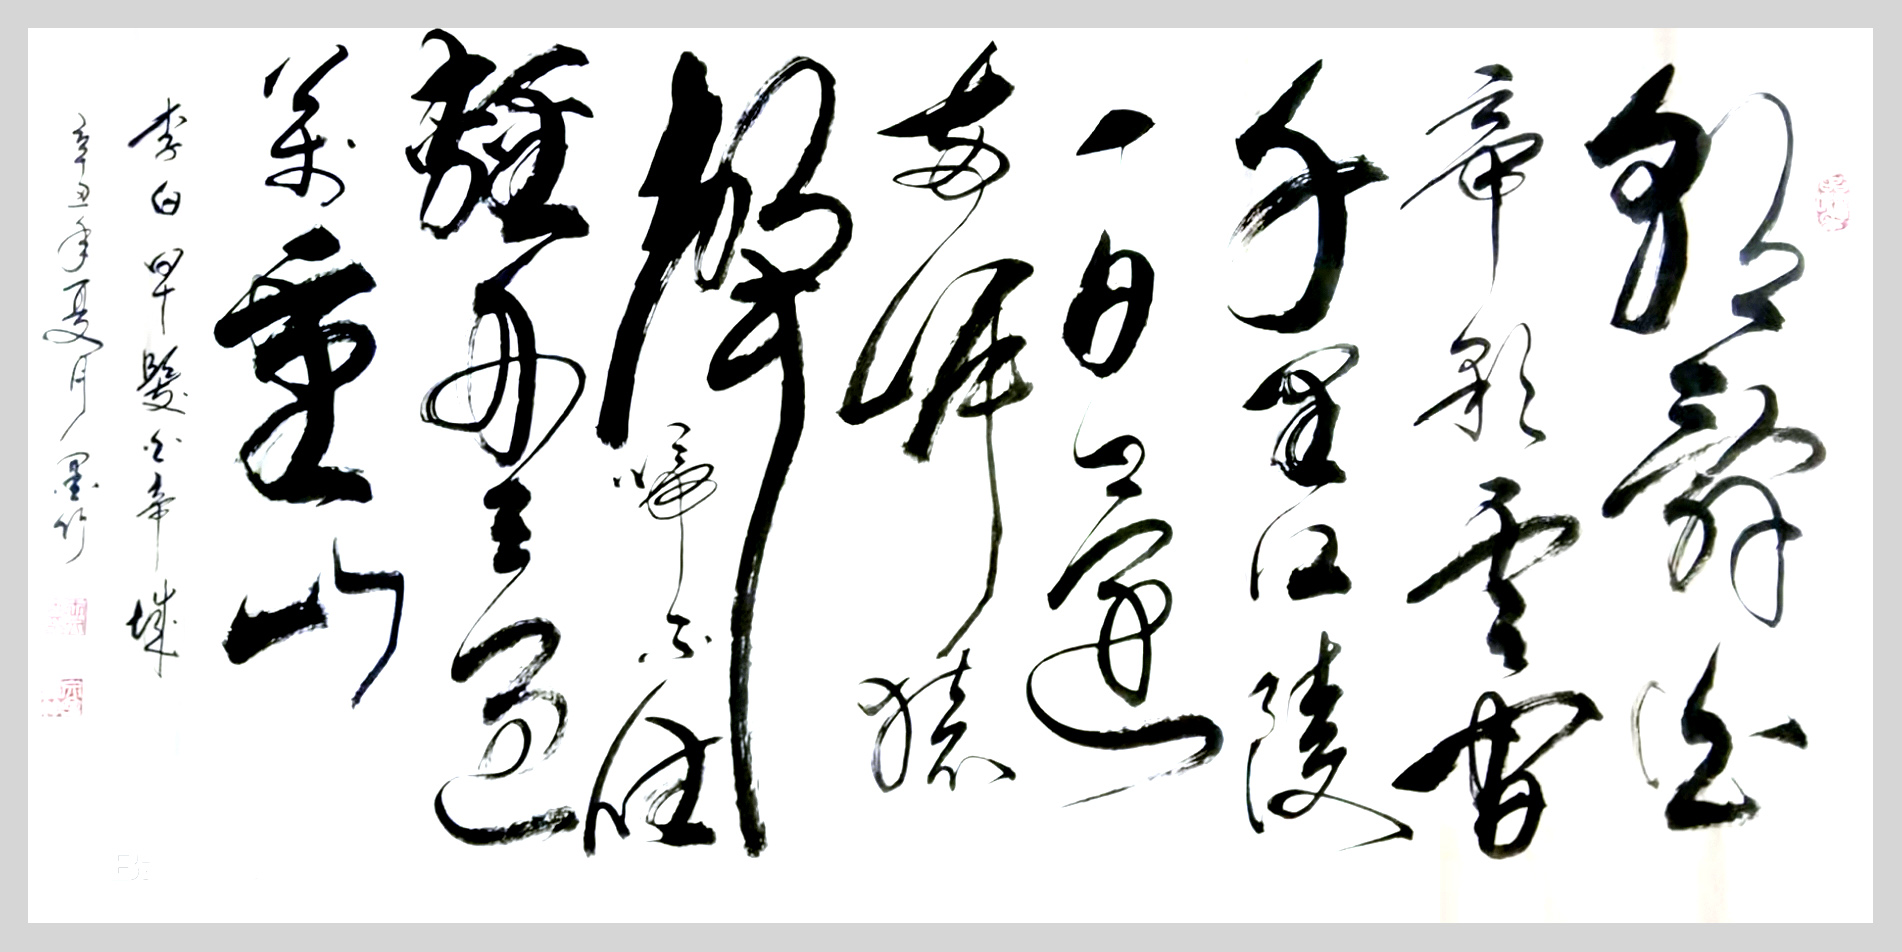 朝辭白
帝彩雲間
千里江陵
一日還
兩岸猿
聲啼不住
輕舟已過
萬重山
李白早發白帝城
辛丑年夏月墨竹